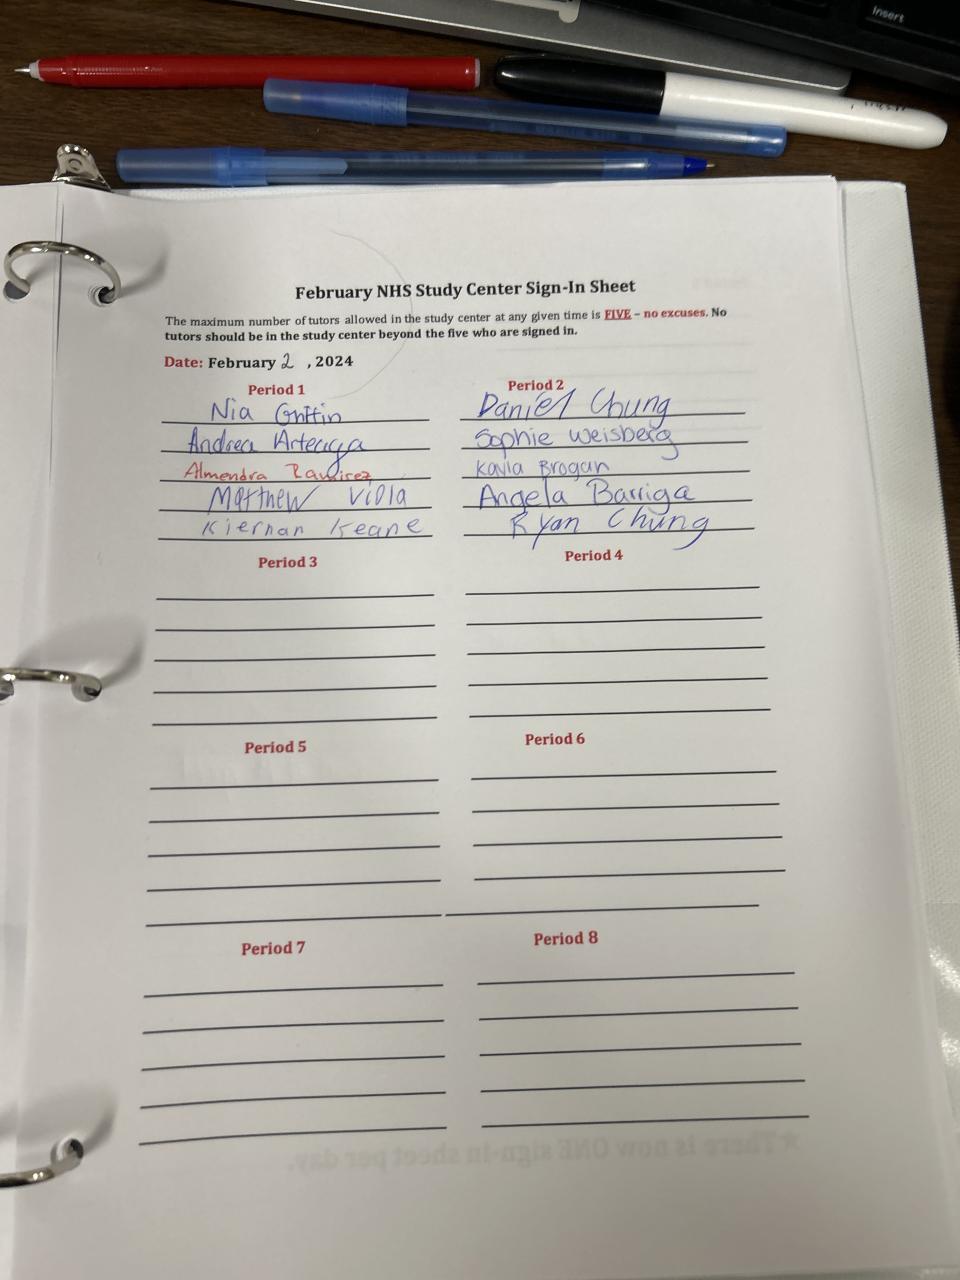 Insert
February NHS Study Center Sign-In Sheet
The maximum number of tutors allowed in the study center at any given time is FIVE – no excuses. No
tutors should be in the study center beyond the five who are signed in.
Date: February 2 , 2024
Period 1
Nia Griffin
Andrea Arteaga
Almendra Ramirez
Matthew Viola
Kiernan Keane
Period 2
Daniel Chung
Sophie Weisberg
Kayla Brogan
Angela Barriga
Ryan Chung
Period 3
Period 4
Period 5
Period 6
Period 7
Period 8
*There is now ONE sign-in sheet per day.